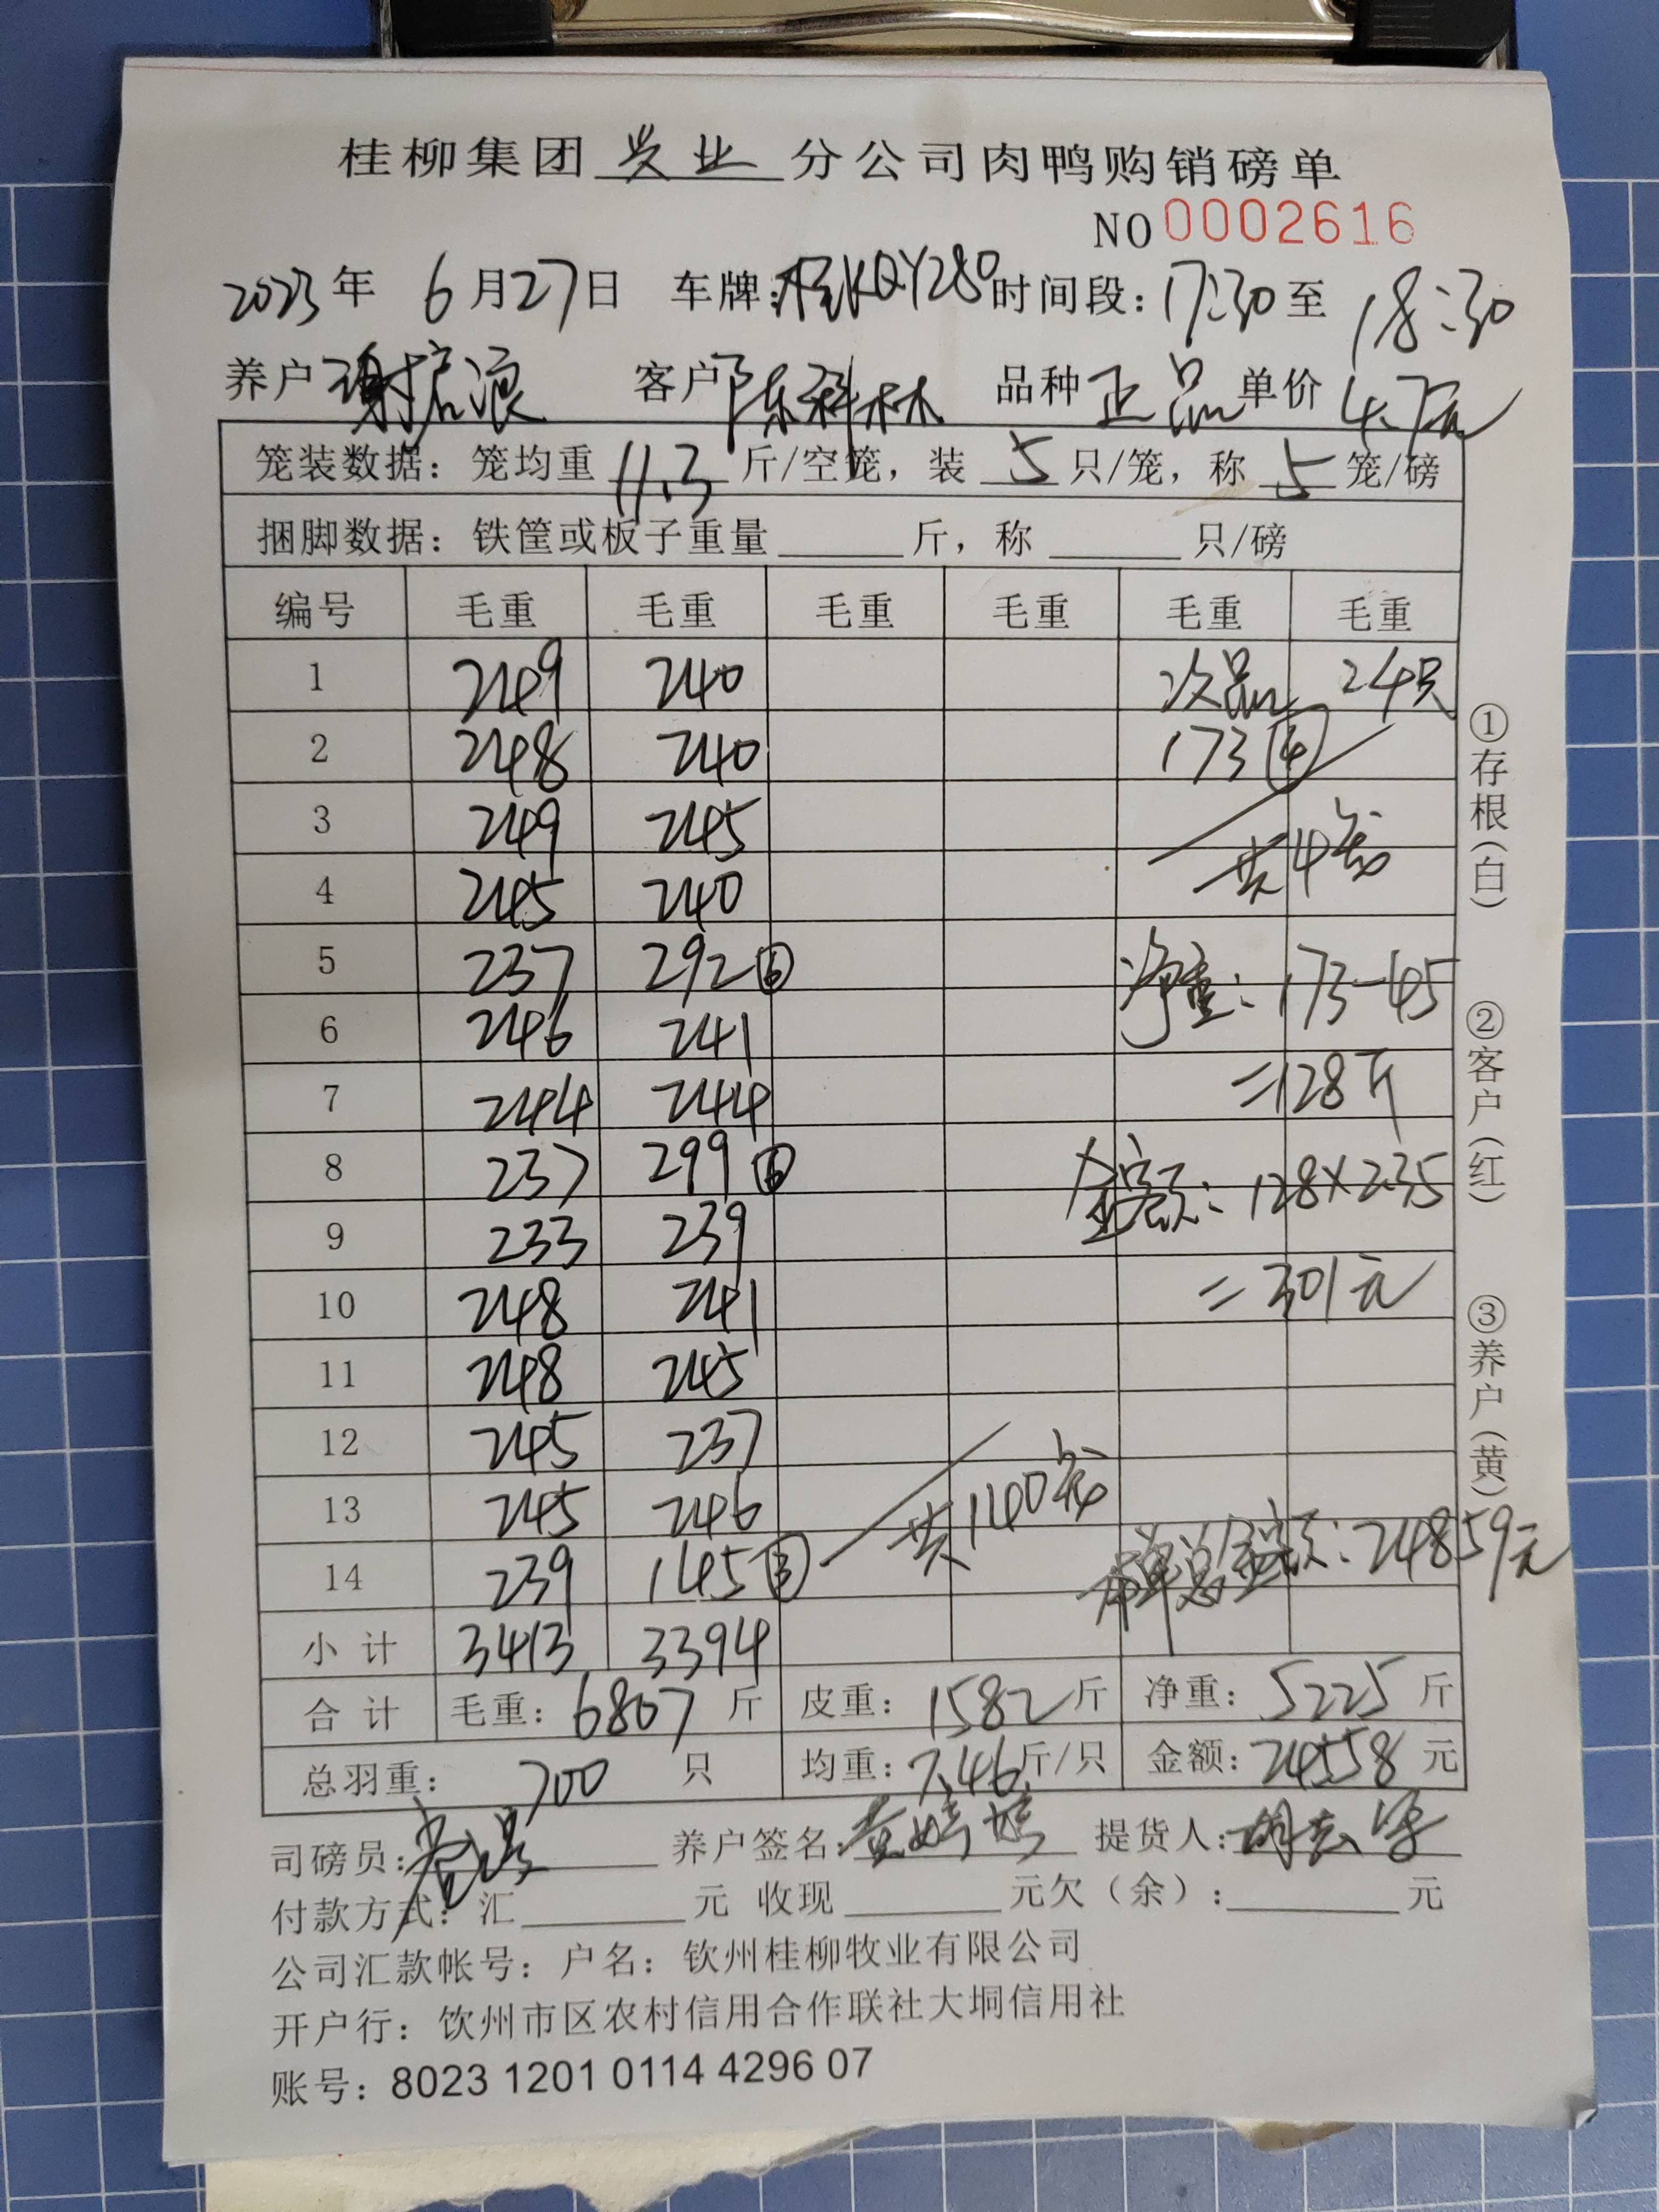 桂柳集团兴业分公司肉鸭购销磅单
NO 0002616
2023年 6月27日 车牌:桂KQY280 时间段:17:30至18:30
养户 谢启浪 客户 陈科林 品种 正品 单价 4.7元
笼装数据:笼均重 11.3 斤/空笼,装 5 只/笼,称 5 笼/磅
捆脚数据:铁筐或板子重量 斤,称 只/磅
编号 毛重 毛重 毛重 毛重 毛重 毛重
1 249 240 次品 24只
2 248 240 173④
3 249 245
4 245 240 共4笼
5 237 292⑥ 净重:173-45
6 246 241
7 244 244 =128斤
8 237 299⑥ 金额:128×2.35
9 233 239
10 248 241 =301元
11 248 245
12 245 237
13 245 246 共140笼
14 239 145③ 本单总金额:24859元
小计 3413 3394
合计 毛重:6807斤 皮重:1582斤 净重:5225斤
总羽重:700只 均重:7.46斤/只 金额:24558元
司磅员: 养户签名:黄婷婷 提货人:
付款方式:汇 元 收现 元欠(余): 元
公司汇款帐号:户名:钦州桂柳牧业有限公司
开户行:钦州市区农村信用合作联社大垌信用社
账号:8023 1201 0114 4296 07
①存根(白)
②客户(红)
③养户(黄)